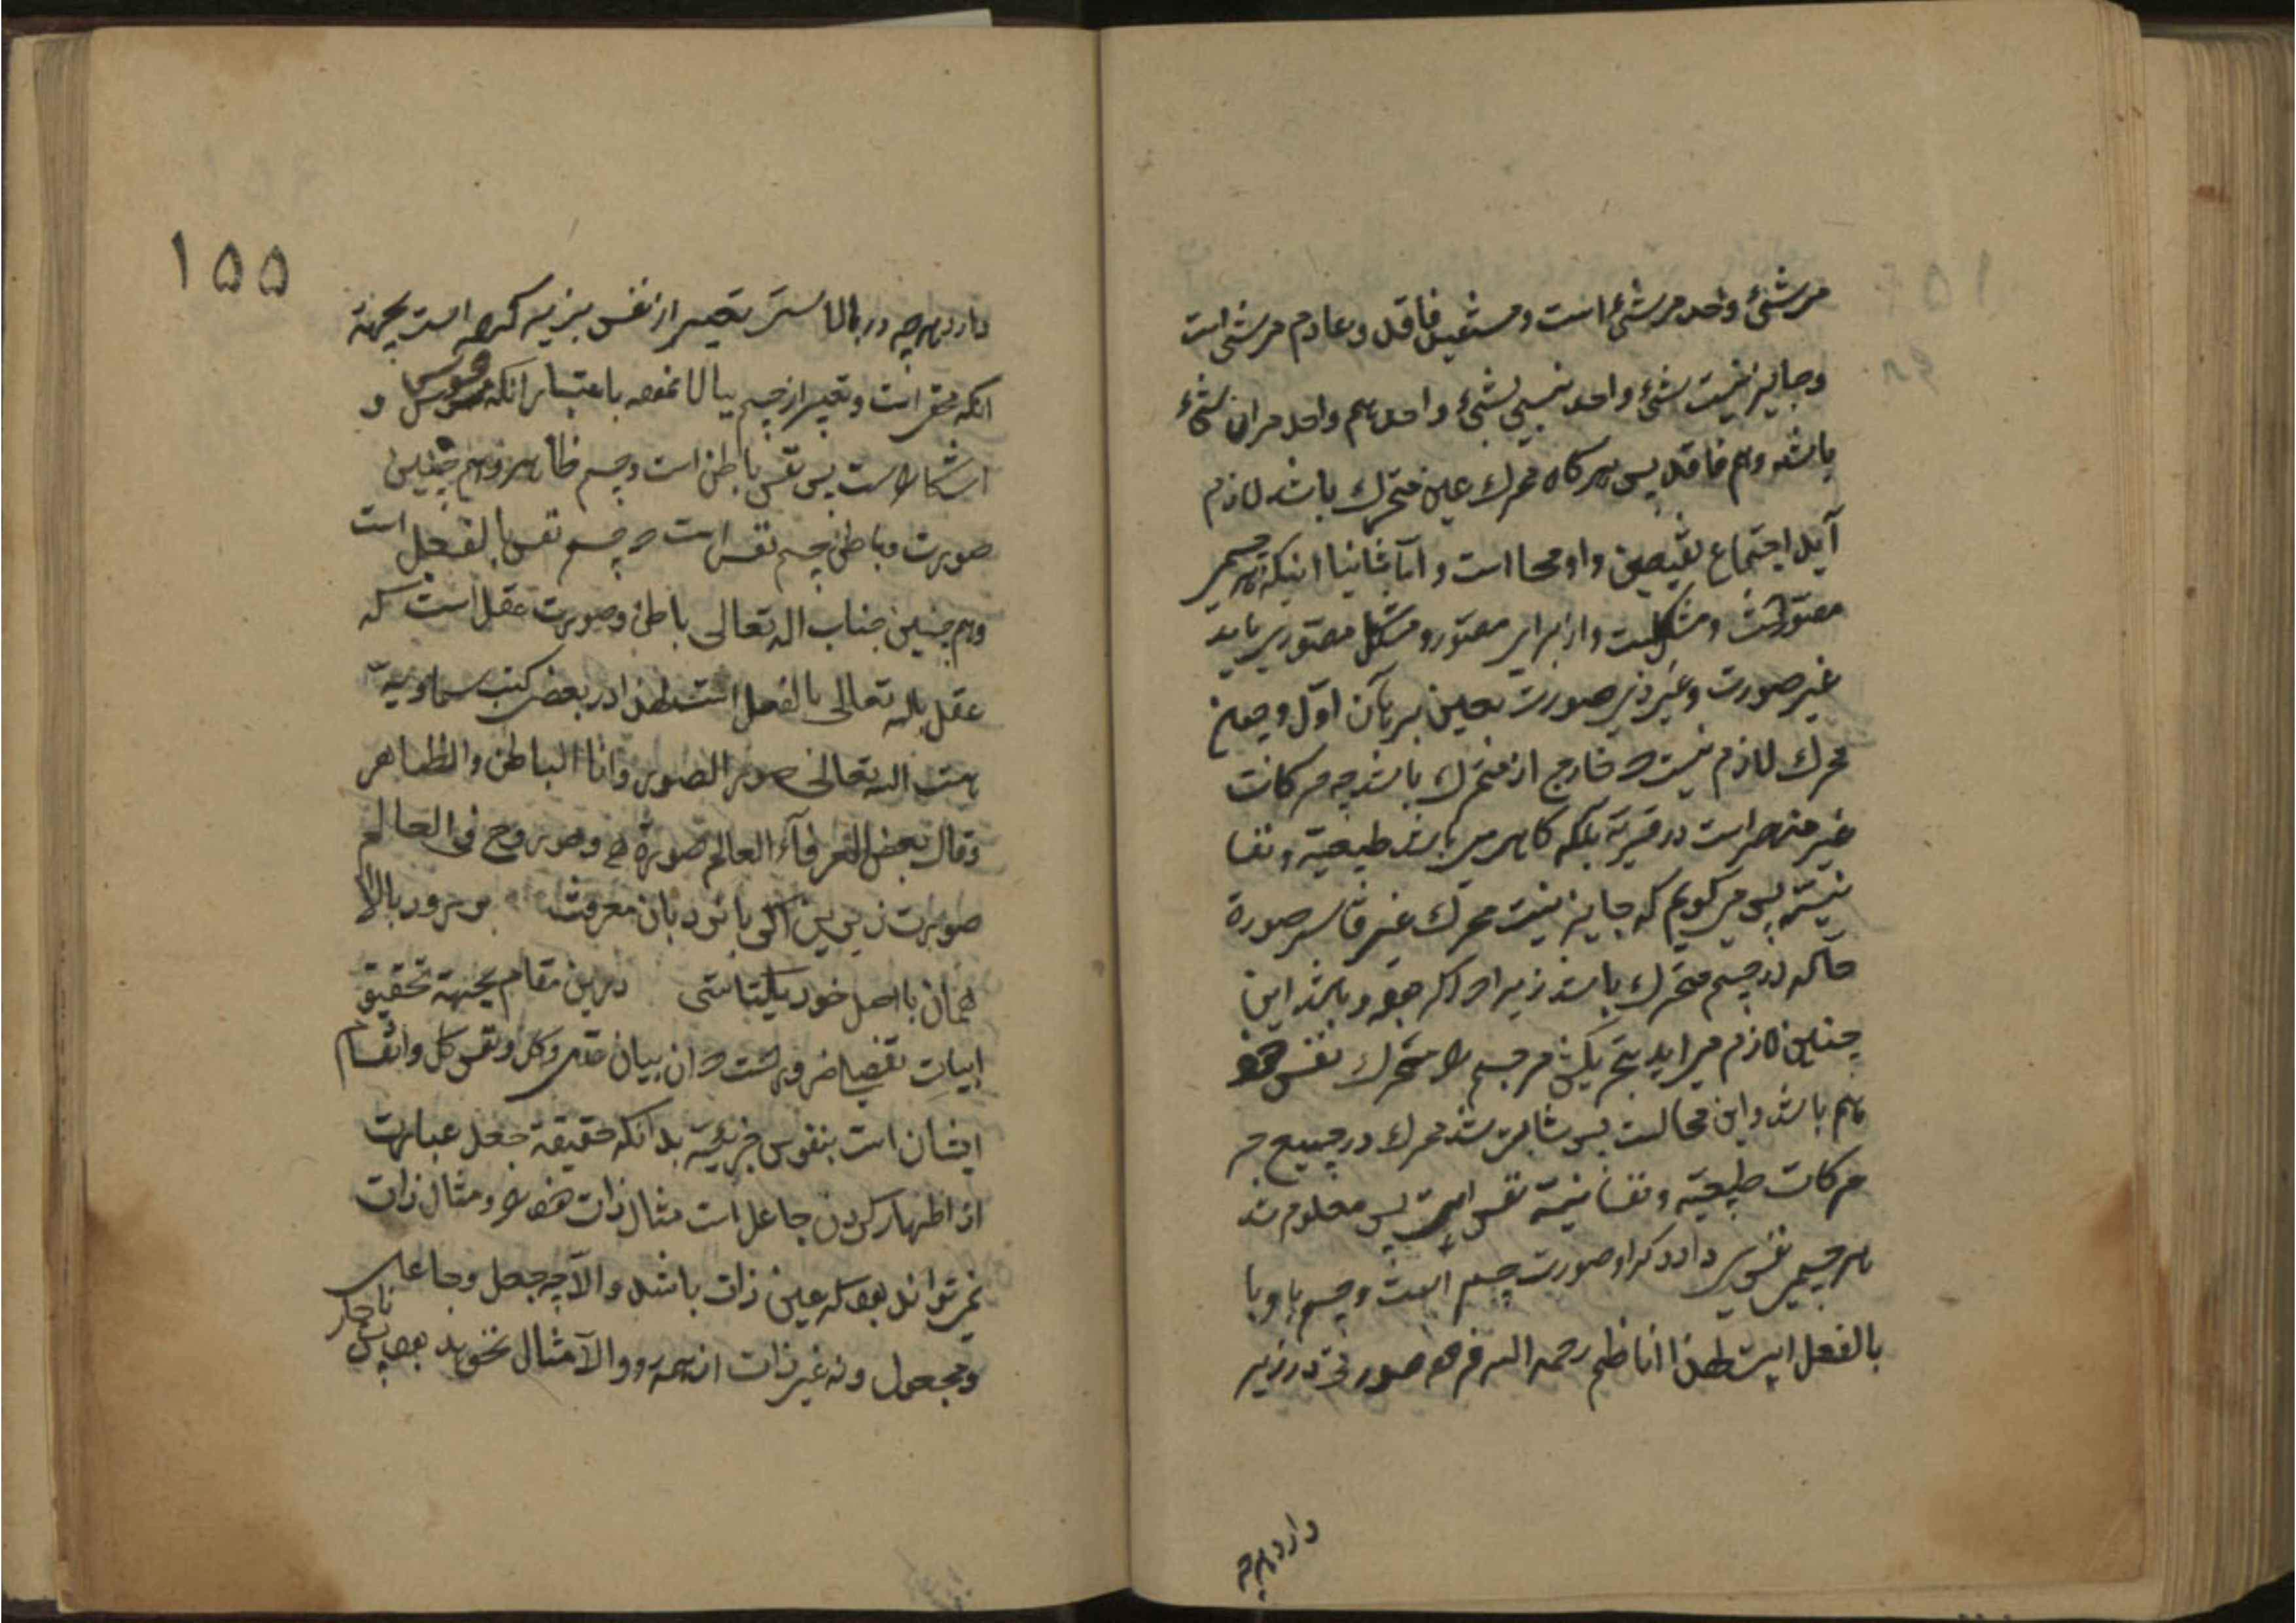 مر شئ واحد مر شئ است و مستفیل فاقد و عادم مر شئ است
و جایز نیست شئ واحد بنسبتی بشئ واحد هم واجد مر ان شئ
باشد و هم فاقد پس هر کاه محرک عین متحرک باشد لازم
آید اجتماع نقیصین و او محا است و اما ثانیا اینکه هر جسمی
مصور است و مشکلست و از برای مصور و مشکل مصوری باید
غیر صورت و غیر ذی صورت بعین برهان اول و چون
محرک لازم نیست که خارج از متحرک باشد چه حرکات
غیر منحصر است در قسریه بلکه کاهی می باشد طبیعیه و نفسا
نیه پس می کویم که جایز نیست محرک غیر قاسر صورة
حاله در جسم متحرک باشد زیرا که اکر جوهر و باشد این
چنین لازم می اید تحریک مر جسم را متحرک نفس خود
هم باشد و این محالست پس ثابت شد محرک در جمیع
حرکات طبیعیه و نفسانیه نفس است پس معلوم شد
هر جسمی نفسی دارد که او صورت جسم است و جسم باو با
بالفعل است لهذا ناظم رحمه الله فرموده صورتی در زیر
دارد هرچه
۱۵۵
دارد هرچه در بالاستی تعبیر از نفس بزیر کرده است بجهة
انکه محقر است و تعبیر از جسم ببالا نموده باعتبار انکه محسوس و
اشکار است پس نفس باطن است و جسم ظاهر و هم چنین
صورت و باطن جسم نفس است که جسم نفس بالفعل است
و هم چنین جناب اله تعالی باطن و صورت عقل است که
عقل باله تعالی بالفعل است لهذا در بعض کتب سماویه
هست الله تعالی صور الصور و انا الباطن و الظاهر
و قال بعض العرفآء العالم صورة و هو روح فی العالم
صورت زیرین اکر با نردبان معرفت بر رود بالا
همان با اصل خود یکتاستی درین مقام بجهة تحقیق
ابیات تفصیل ضرورست که ان بیان عقل کل و نفس کل و انقسام
ایشان است بنفوس جزئیه بدانکه حقیقة جعل عبارت
از اظهار کردن جاعل است مثال ذات خود را و مثال ذات
نمی تواند بود که عین ذات باشد و الا چه جعل و جاعلی
و مجعول و نه غیر ذات از همه رو و الا مثال نخواهد بود پس ناچار